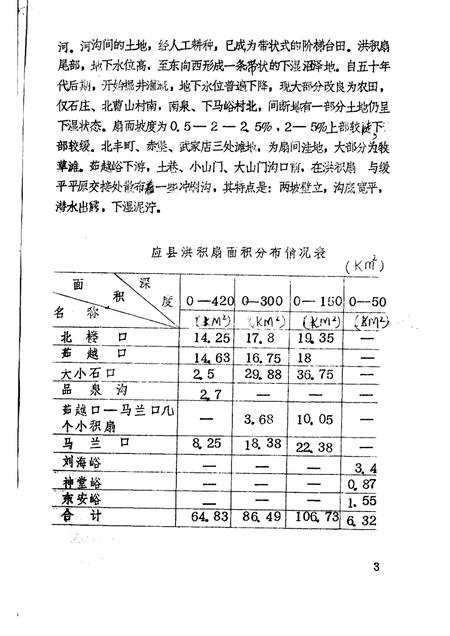 河。河沟间的土地，经人工耕种，已成为带状式的阶梯台田。洪积扇
尾部，地下水位高，至东向西形成一条带状的下湿沼泽地。自五十年
代后期，开始掘井灌溉，地下水位普遍下降，现大部分改良为农田，
仅石庄、北曹山村南，南泉、下马峪村北，间断地有一部分土地仍呈
下湿状态。扇面坡度为0.5—2—2.5%，2—5%上部较陡下
部较缓。北丰町、赤堡、武家店三处滩地，为扇间洼地，大部分为牧
草滩。茹越峪下游，土巷、小山门、大山门沟口前，在洪积扇 与缓
平平原交接处散布着一些冲刷沟，其特点是：两坡壁立，沟底宽平，
潜水出露，下湿泥泞。
应县洪积扇面积分布情况表
(Km²)
面积 深度 名称
0—420 0—300 0—150 0—50
(KM²) (KM²) (KM²) (KM²)
北楼口 14.25 17.8 19.35 —
茹越口 14.63 16.75 18 —
大小石口 2.5 29.88 36.75 —
品泉沟 2.7 — — —
茹越口—马兰口几
个小积扇 — 3.68 10.05 —
马兰口 8.25 18.38 22.38 —
刘海峪 — — — 3.4
神堂峪 — — — 0.87
东安峪 — — — 1.55
合计 64.83 86.49 106.73 6.32
3